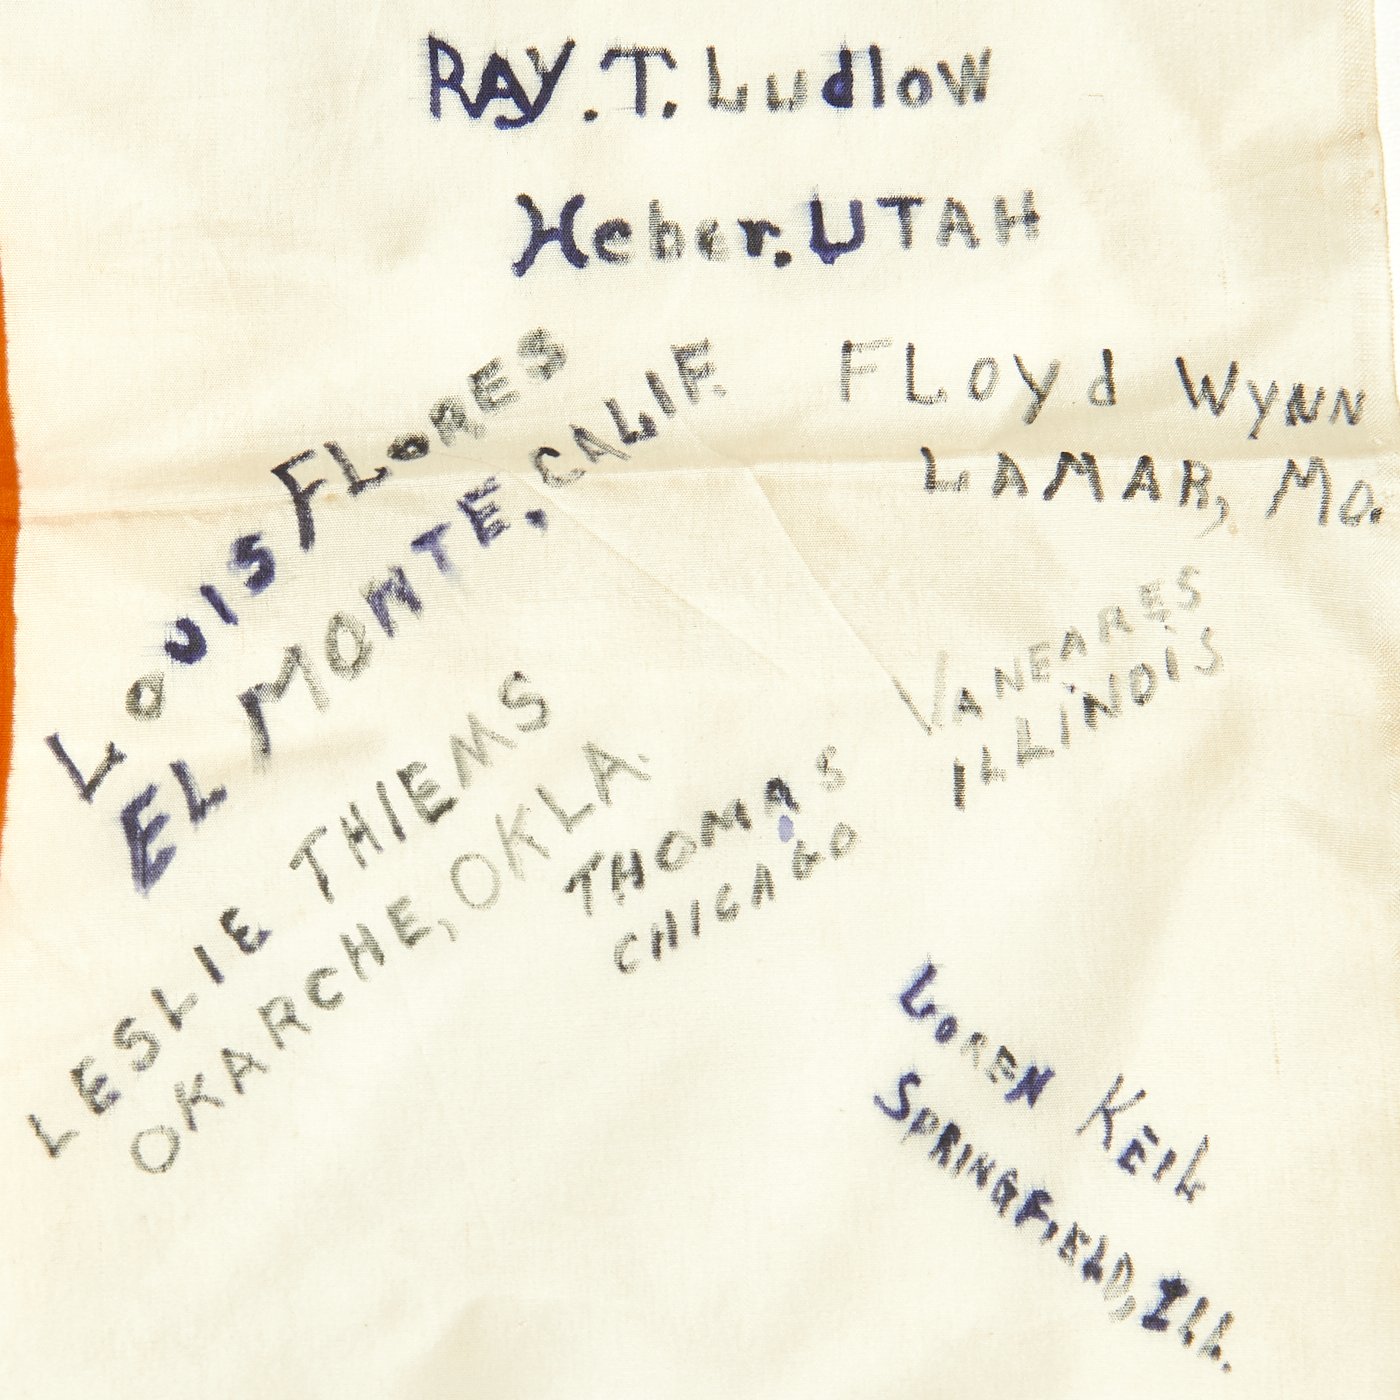 RAY. T. Ludlow
Heber. UTAH
LOUIS FLORES
EL MONTE, CALIF.
FLOYd WYNN
LAMAR, MO.
VANEARES
ILLINOIS
LESLIE THIEMS
OKARCHE, OKLA.
THOMAS
CHICAGO
LOREN KEIL
SPRINGFIELD, ILL.